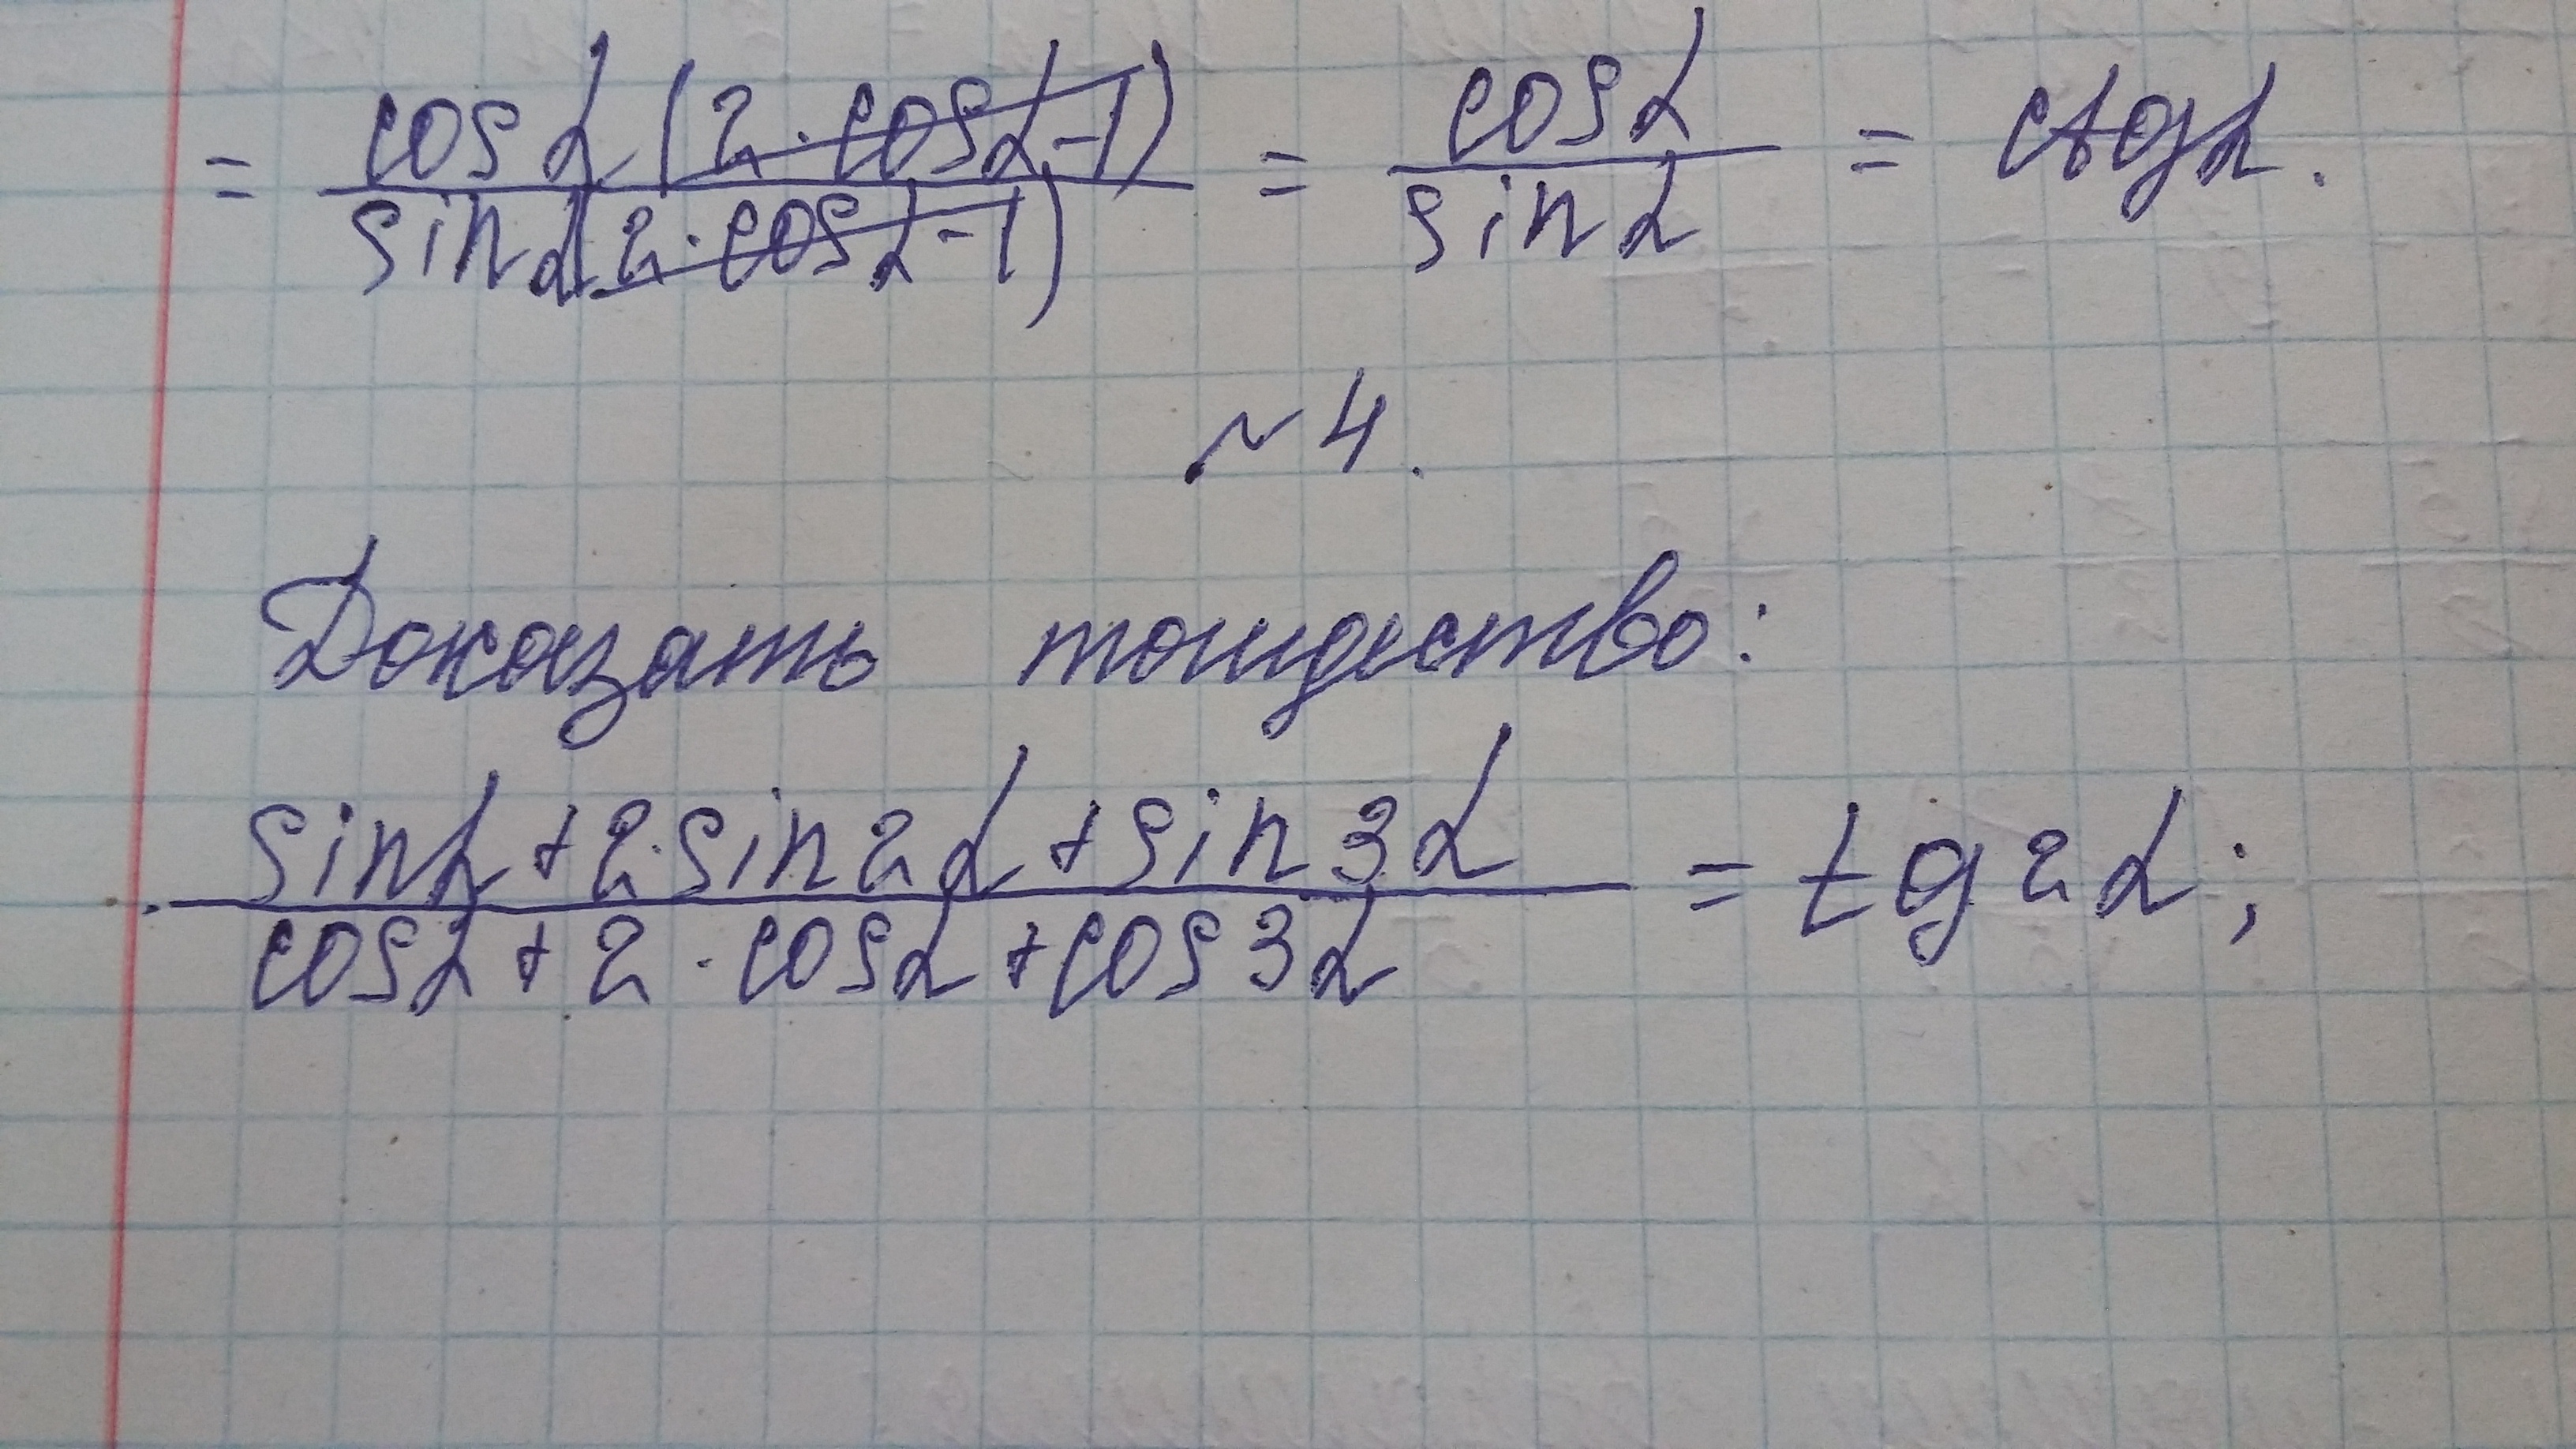 = cosα(2·cosα-1) / sinα(2·cosα-1) = cosα / sinα = ctgα.
~4.
Доказать тождество:
sinα+2·sin2α+sin3α / cosα+2·cosα+cos3α = tg2α;